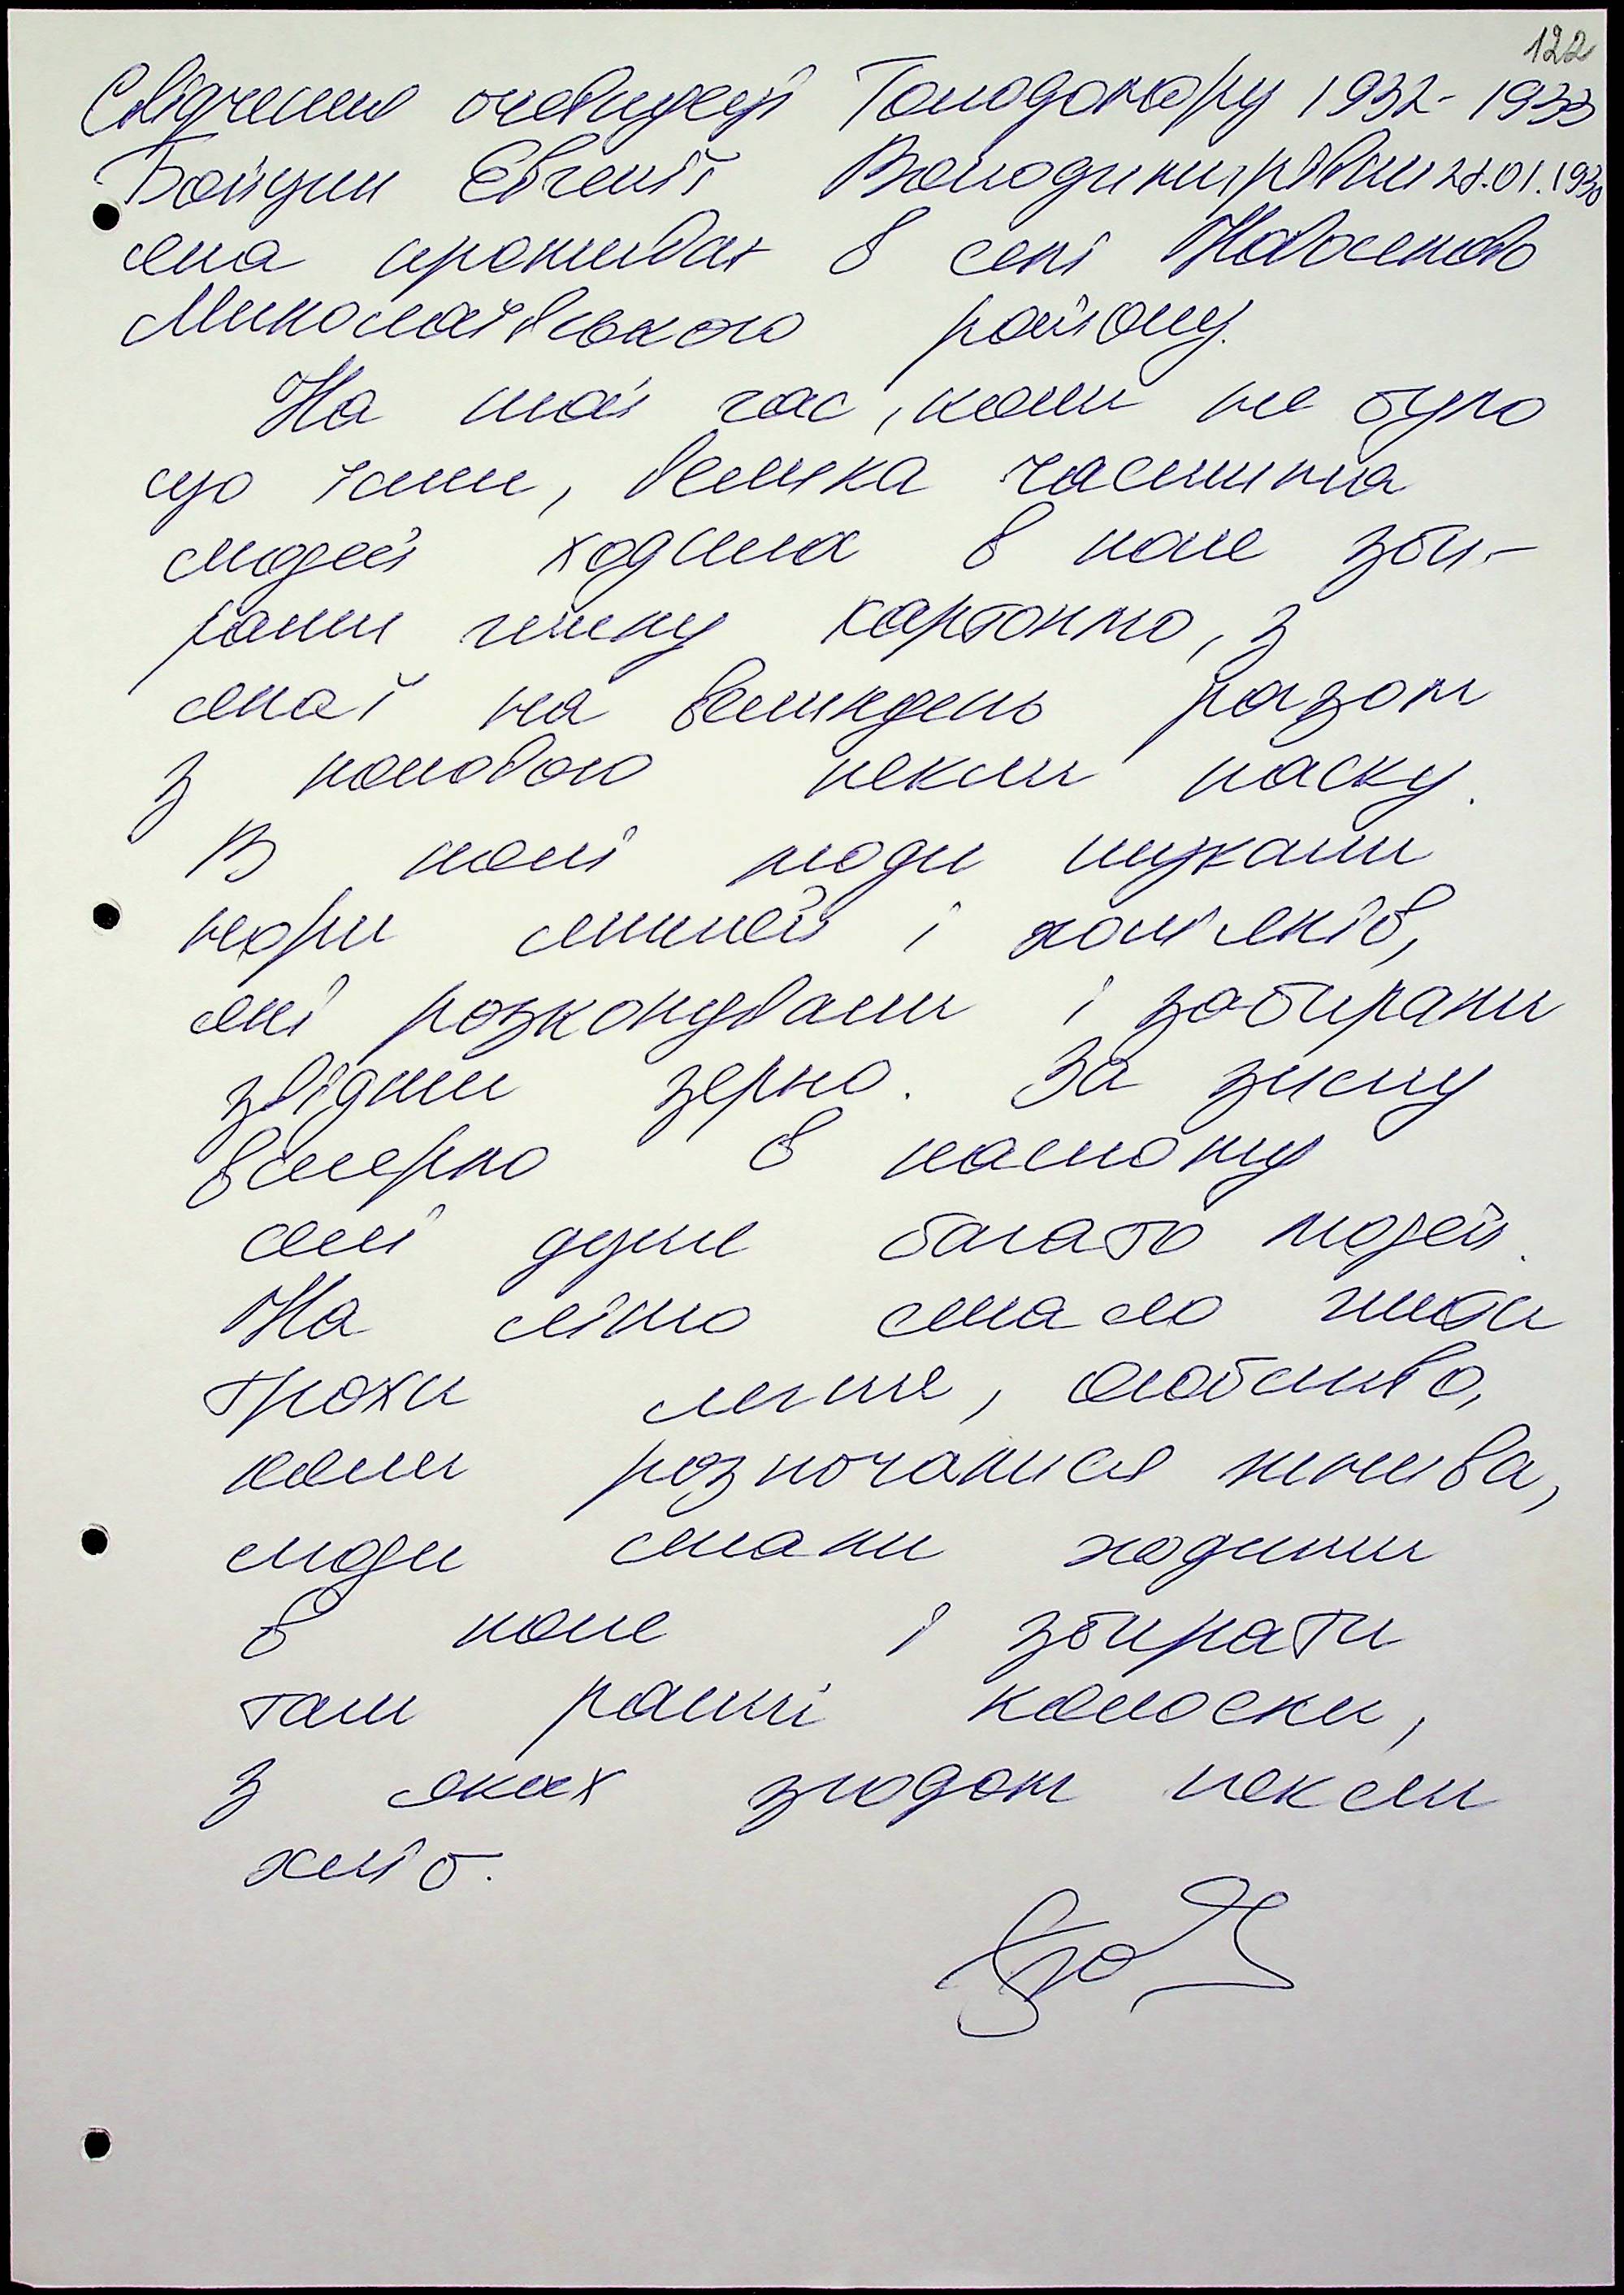 122
Свідчення очевидця Голодомору 1932-1933
Бойцун Євгенії Володимирівни 28.01.1930
яка проживає в селі Новоселово
Миколаївського району.
На той час, коли не було
що їсти, велика частина
людей ходила в поле зби-
рати гнилу картоплю, з
якої на великдень разом
з половою пекли паску.
В полі люди шукали
нори мишей і хом'яків,
які розкопували і забирали
звідти зерно. За зиму
вмерло в нашому
селі дуже багато людей.
На літо стало жити
трохи легше, особливо,
коли розпочалися жнива,
люди стали ходити
в поле і збирати
там ранні колоски,
з яких згодом пекли
хліб.